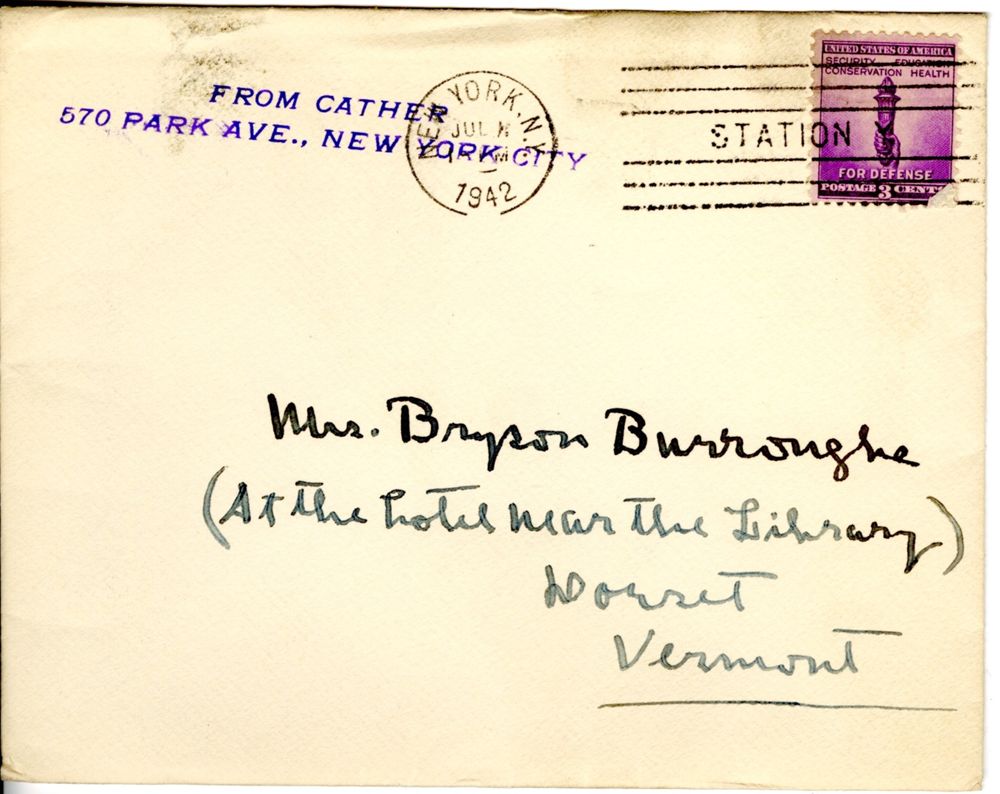 FROM CATHER
570 PARK AVE., NEW YORK CITY
NEW YORK, N.Y.
JUL
PM
1942
STATION
UNITED STATES OF AMERICA
SECURITY EDUCATION
CONSERVATION HEALTH
FOR DEFENSE
POSTAGE 3 CENTS
Mrs. Bryson Burroughs
(At the hotel near the Library)
Dorset
Vermont